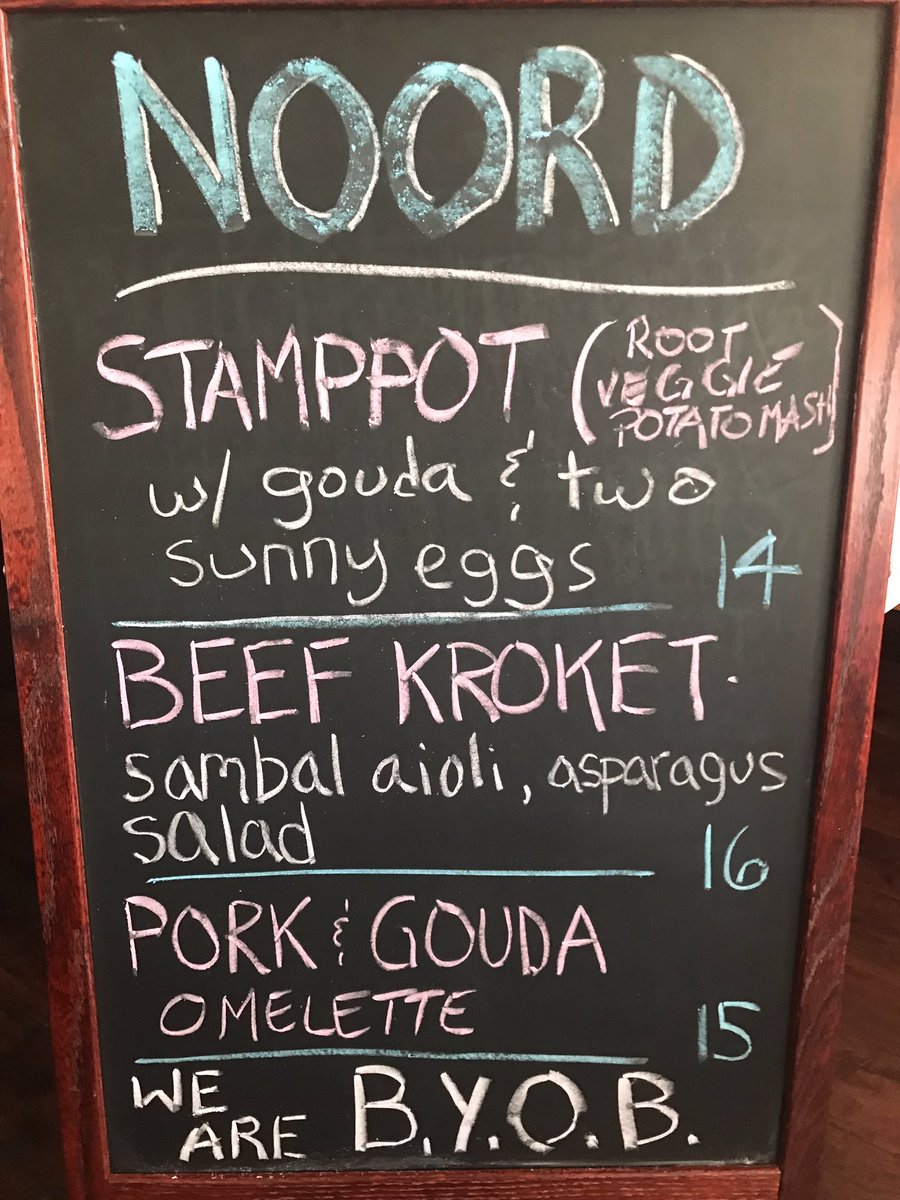 NOORD
STAMPPOT (ROOT
VEGGIE
POTATO MASH)
w/ gouda & two
sunny eggs 14
BEEF KROKET.
sambal aioli, asparagus
salad 16
PORK & GOUDA
OMELETTE 15
WE
ARE B.Y.O.B.